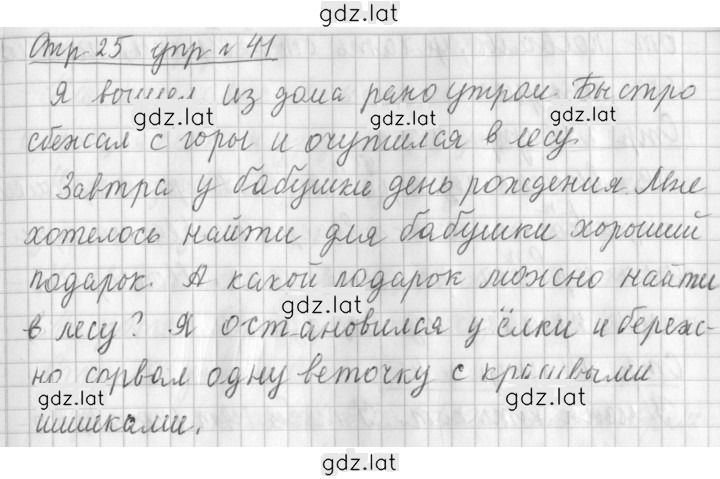 gdz.lat
Стр 25 упр № 41
Я вышел из дома рано утром. Быстро
gdz.lat gdz.lat gdz.lat
сбежал с горы и очутился в лесу.
Завтра у бабушки день рождения. Мне
хотелось найти для бабушки хороший
подарок. А какой подарок можно найти
gdz.lat
в лесу? Я остановился у ёлки и береж-
но сорвал одну веточку с красивыми
gdz.lat gdz.lat
шишками.
gdz.lat